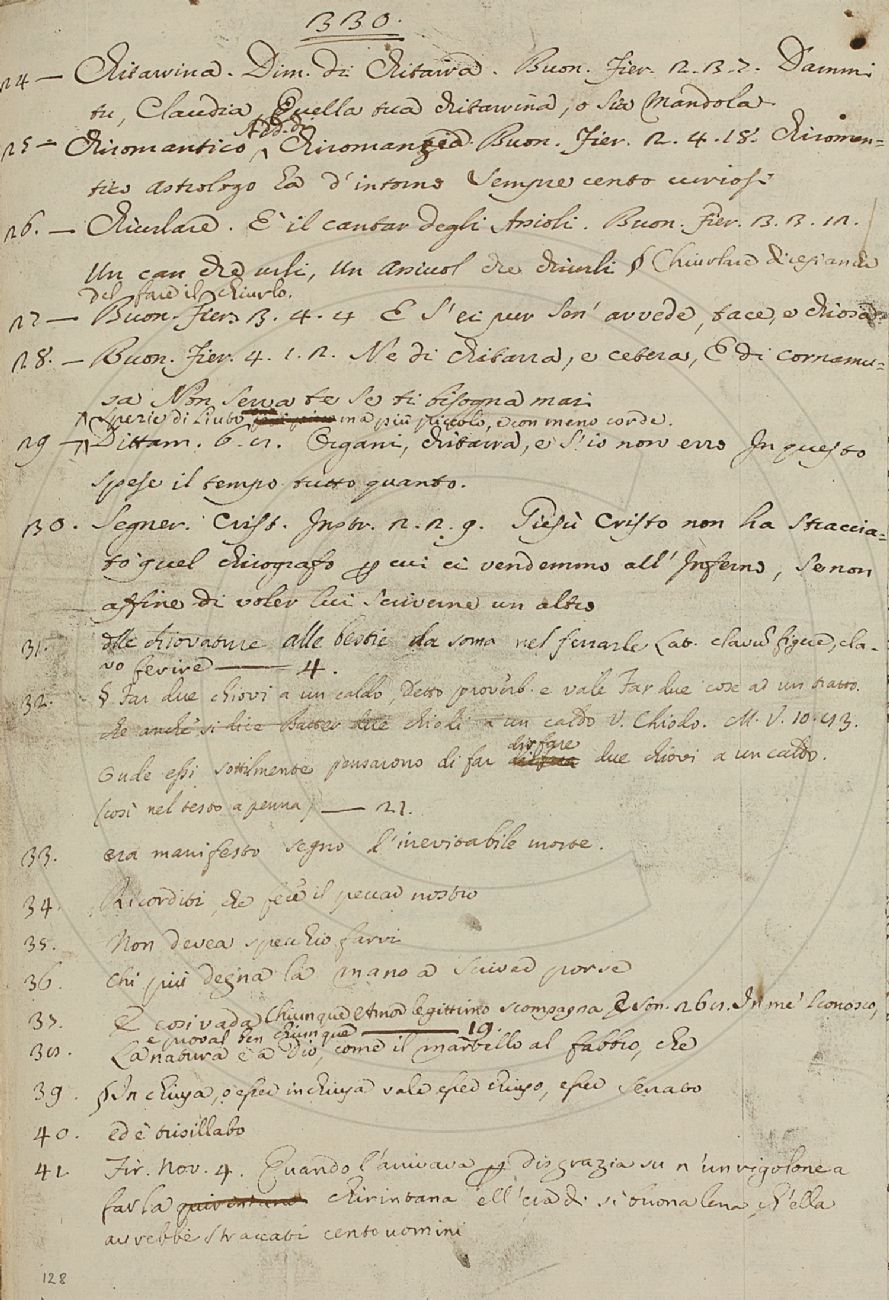 330.
24 — Chitarrina. Dim. di Chitarra. Buon. Fier. 2. 3. 7. Dammi
tu, Claudia, Quella tua chitarrina, o sia Mandola
Add. di
25 — Chiromantico ^ Chiromanzia Buon. Fier. 2. 4. 18. Chiroman=
tico astrologo ha d'intorno sempre cento curiosi
26. — Chiurlare. E' il cantar degli Assioli. Buon. Fier. 3. 3. 12.
Un can che urli, un assiuol che chiurli § Chiurlare dicesi anche
del fare il chiurlo.
27 — Buon. Fier. 3. 4. 4 E s'ei pur sen' avvede, tace, e chiosa
28. — Buon. Fier. 4. 1. 2. Ne di chitarra, e cetera, E di cornamu-
sa Non serva te se ti bisogna mai
^ Spezie di Liuto, ma più piccolo, e con meno corde.
29 — ^ Dittam. 6. Organi, chitarra, e s'io non erro In questo
spese il tempo tutto quanto.
30. Segner. Crist. Instr. 2. 2. 9. Giesù Cristo non ha straccia=
to quel chirografo p cui ci vendemmo all'Inferno, se non
affine di voler lui scriverne un altro
31. chiovature alle bestie da soma nel ferrarle Lat. clavum figere, cla-
vo ferire — 4.
32. § Far due chiovi a un caldo, Detto proverb. e vale Far due cose ad un tratto.
che anche si dice Batter due chiodi a un caldo V. Chiodo. M. V. 10.
Onde essi sottilmente pensarono di far due chiovi a un caldo.
(così nel testo a penna) — 21.
33. era manifesto segno d'inevitabile morte.
34. Ricorditi, che fece il peccar nostro
35. Non devea specchio farvi
36. Chi più degna la mano a scriver porse
37. E così vada Chiunque Amor legittimo scompagna E son. In me' l conosco,
e proval ben chiunque — 19.
38. La natura è a Dio, come il martello al fabbro, che
39. § In chiusa, o esser in chiusa vale esser chiuso, esser serrato
40. ed è trisillabo
41. Fir. Nov. 4. Quando l'arrivava p disgrazia su n'un rigolone a
far la quirintana chirintana ell'era di sì buona lena, ch'ella
avrebbe straccati cento uomini
128